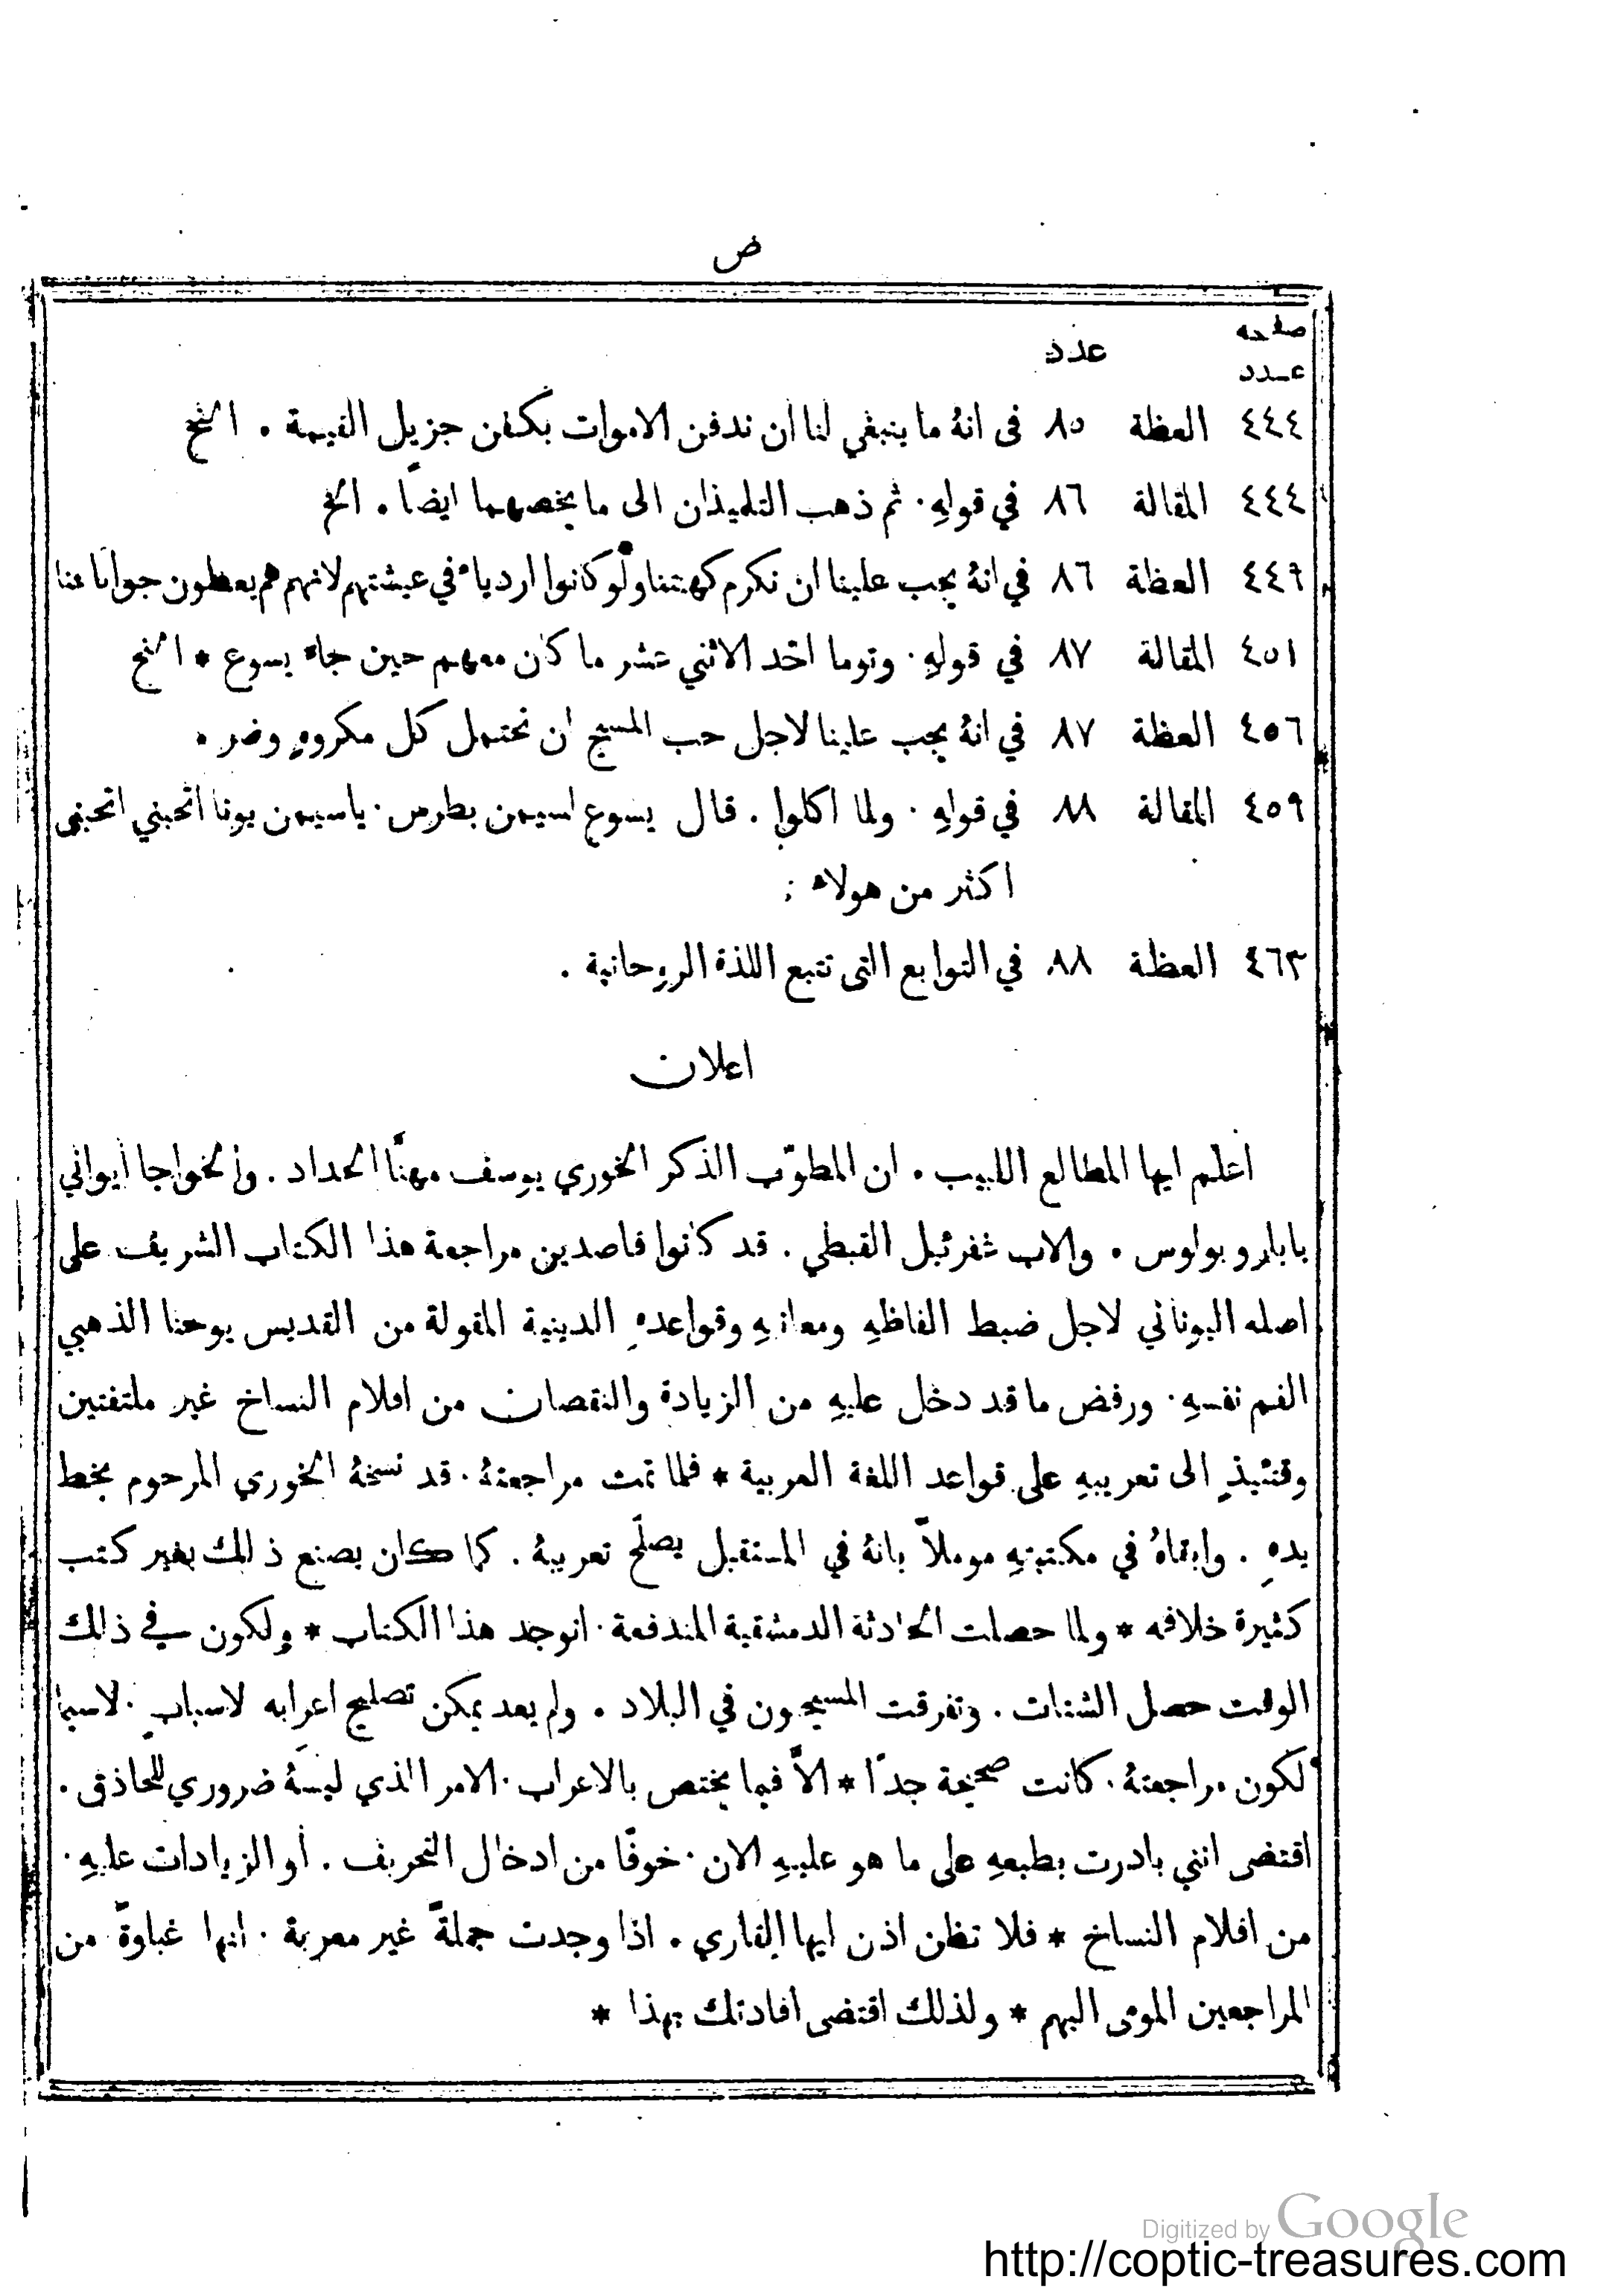 ض
صفحه
عدد
عدد
٤٤٤ العظة ٨٥ فى انهُ ما ينبغي لنا ان ندفن الاموات بكفن جزيل القيمة . الخ
٤٤٤ المقالة ٨٦ في قولهِ . ثم ذهب التلميذان الى ما يخصهما ايضًا . الخ
٤٤٩ العظة ٨٦ في انهُ يجب علينا ان نكرم كهنتنا ولو كانوا اردياء في عيشتهم لانهم هم يعطون جوابًا عنا
٤٥١ المقالة ٨٧ في قولهِ . وتوما احد الاثني عشر ما كان معهم حين جاء يسوع * الخ
٤٥٦ العظة ٨٧ في انهُ يجب علينا لاجل حب المسيح ان نحتمل كل مكروهٍ وضر .
٤٥٩ المقالة ٨٨ في قولهِ . ولما اكلوا . قال يسوع لسيمن بطرس . ياسيمن يونا اتحبني اتحبنى
اكثر من هولاء ;
٤٦٣ العظة ٨٨ في التوابع التى تتبع اللذة الروحانية .
اعلان
اعلم ايها المطالع اللبيب . ان المطوّب الذكر الخوري يوسف مهنَّا الحداد . والخواجا ايواني
بابادو بولوس . والاب ثفرئيل القبطي . قد كانوا قاصدين مراجعة هذا الكتاب الشريف على
اصله اليوناني لاجل ضبط الفاظهِ ومعانيهِ وقواعدهِ الدينية المقولة من القديس يوحنا الذهبي
الفم نفسهِ . ورفض ما قد دخل عليهِ من الزيادة والنقصان من اقلام النساخ غير ملتفتين
وقتئيذٍ الى تعريبهِ على قواعد اللغة العربية * فلما تمت مراجعتهُ . قد نسخهُ الخوري المرحوم بخط
يدهِ . وابقاهُ في مكتبتهِ موملاً بانهُ في المستقبل يصلّح تعريبهُ . كما كان يصنع ذلك بغير كتب
كثيرة خلافه * ولما حصلت الحادثة الدمشقية المندفعة . انوجد هذا الكتاب * ولكون في ذلك
الوقت حصل الشتات . وتفرقت المسيحيون في البلاد . ولم يعد يمكن تصليح اعرابه لاسبابٍ . لاسيما
لكون مراجعتهُ . كانت صحيحة جدًا * الاَّ فيما يختص بالاعراب . الامر الذي ليسهُ ضروري للحاذق .
اقتضى انني بادرت بطبعهِ على ما هو عليهِ الان . خوفًا من ادخال التحريف . أو الزيادات عليهِ .
من اقلام النساخ * فلا تظن اذن ايها القاري . اذا وجدت جملةً غير معربة . انها غباوةً من
المراجعين المومى اليهم * ولذلك اقتضى افادتك بهذا *
Digitized by Google
http://coptic-treasures.com